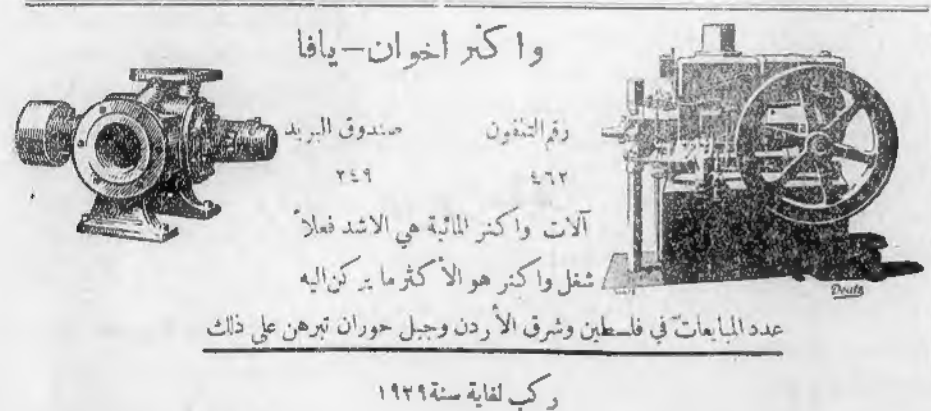 واكنر اخوان – يافا
رقم التلفون صندوق البريد
٤٦٢ ٢٤٩
آلات واكنر المائية هي الاشد فعلاً
شغل واكنر هو الأكثر ما يركن اليه
عدد المبايعات في فلسطين وشرق الأردن وجبل حوران تبرهن على ذلك
ركب لغاية سنة ١٩٢٩
Deutz